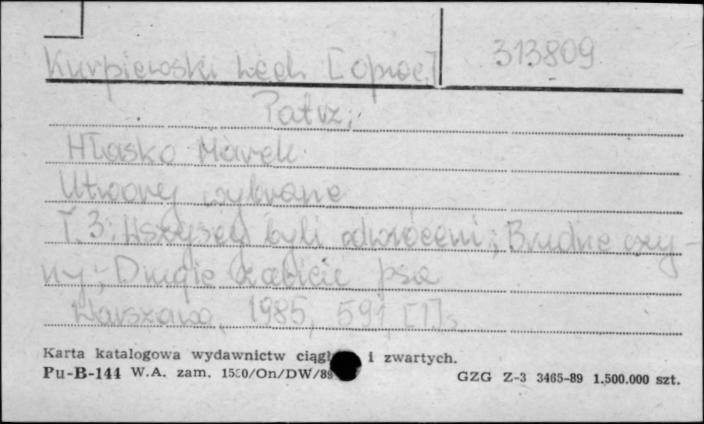 Kurpiewski Lech [oprac.] 313809
Patrz:
Hłasko Marek
Utwory wybrane
T. 3: Wszyscy byli odwróceni; Brudne czy-
ny; Drugie zabicie psa
Warszawa, 1985, 591, [1] s.
Karta katalogowa wydawnictw i zwartych.
Pu-B-144 W.A. zam. GZG Z-3 3465-89 1.500.000 szt.